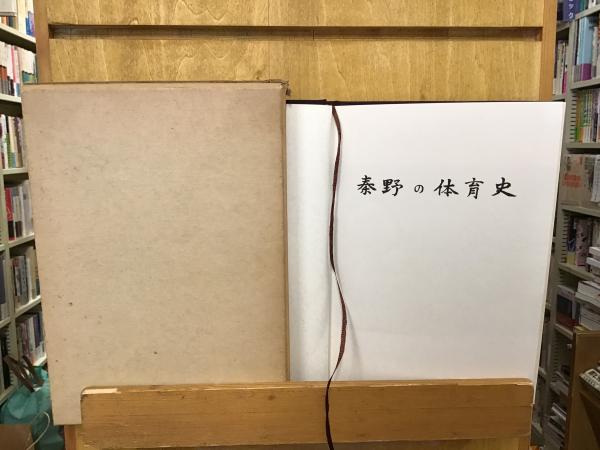 秦野の体育史